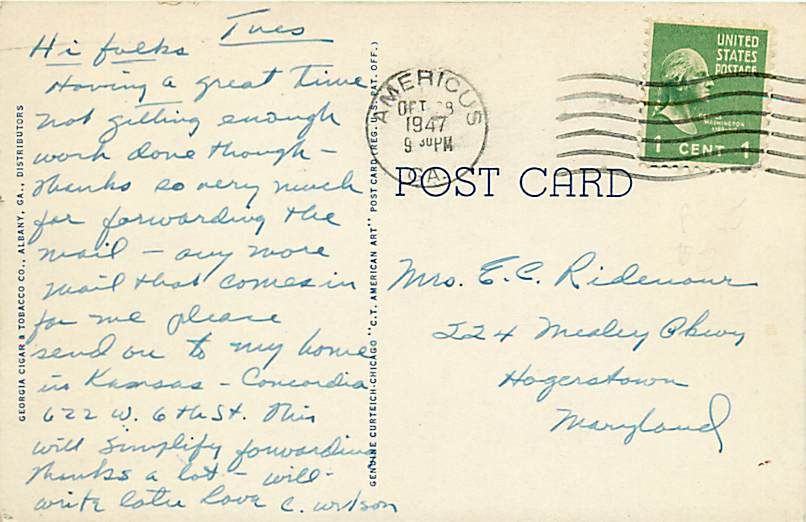 Tues
Hi folks
Having a great time
not getting enough
work done though -
thanks so very much
for forwarding the
mail - any more
mail that comes in
for me please
send on to my home
in Kansas - Concordia
622 W. 6th St. This
will simplify forwarding
thanks a lot - will
write later love C. Wilson
GEORGIA CIGAR & TOBACCO CO., ALBANY, GA., DISTRIBUTORS
GENUINE CURTEICH-CHICAGO "C.T. AMERICAN ART" POST CARD (REG. U.S. PAT. OFF.)
AMERICUS
OCT 28
1947
9 30 PM
GA.
UNITED
STATES
POSTAGE
WASHINGTON
1 CENT 1
POST CARD
Mrs. E. C. Ridenour
224 Mealey Pkwy
Hagerstown
Maryland